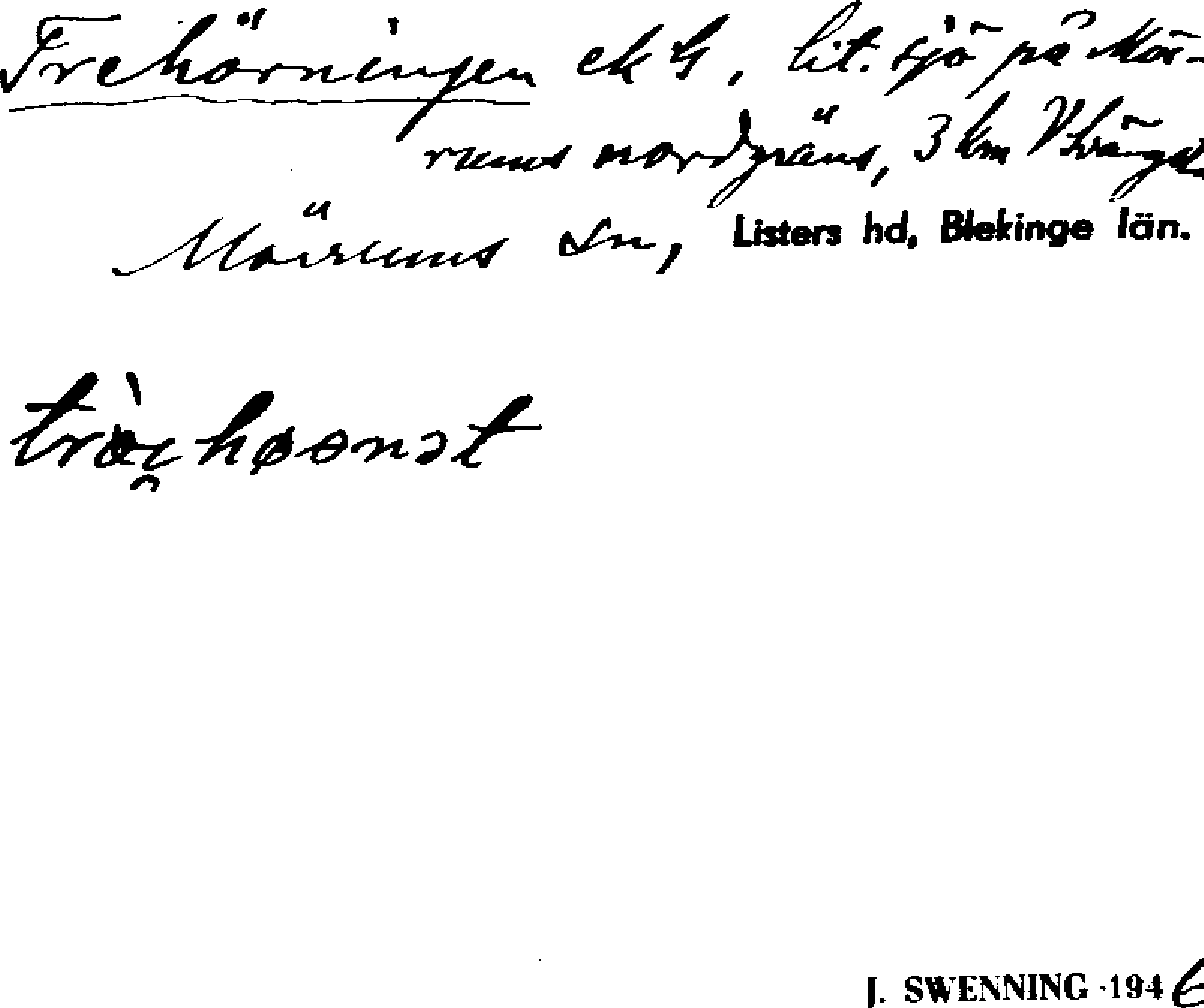 Trehörningen ek 4, lit. sjö på Mör-
rums nordgräns, 3 km V Svängsta
Mörrums sn, Listers hd, Blekinge län.
J. SWENNING · 1946